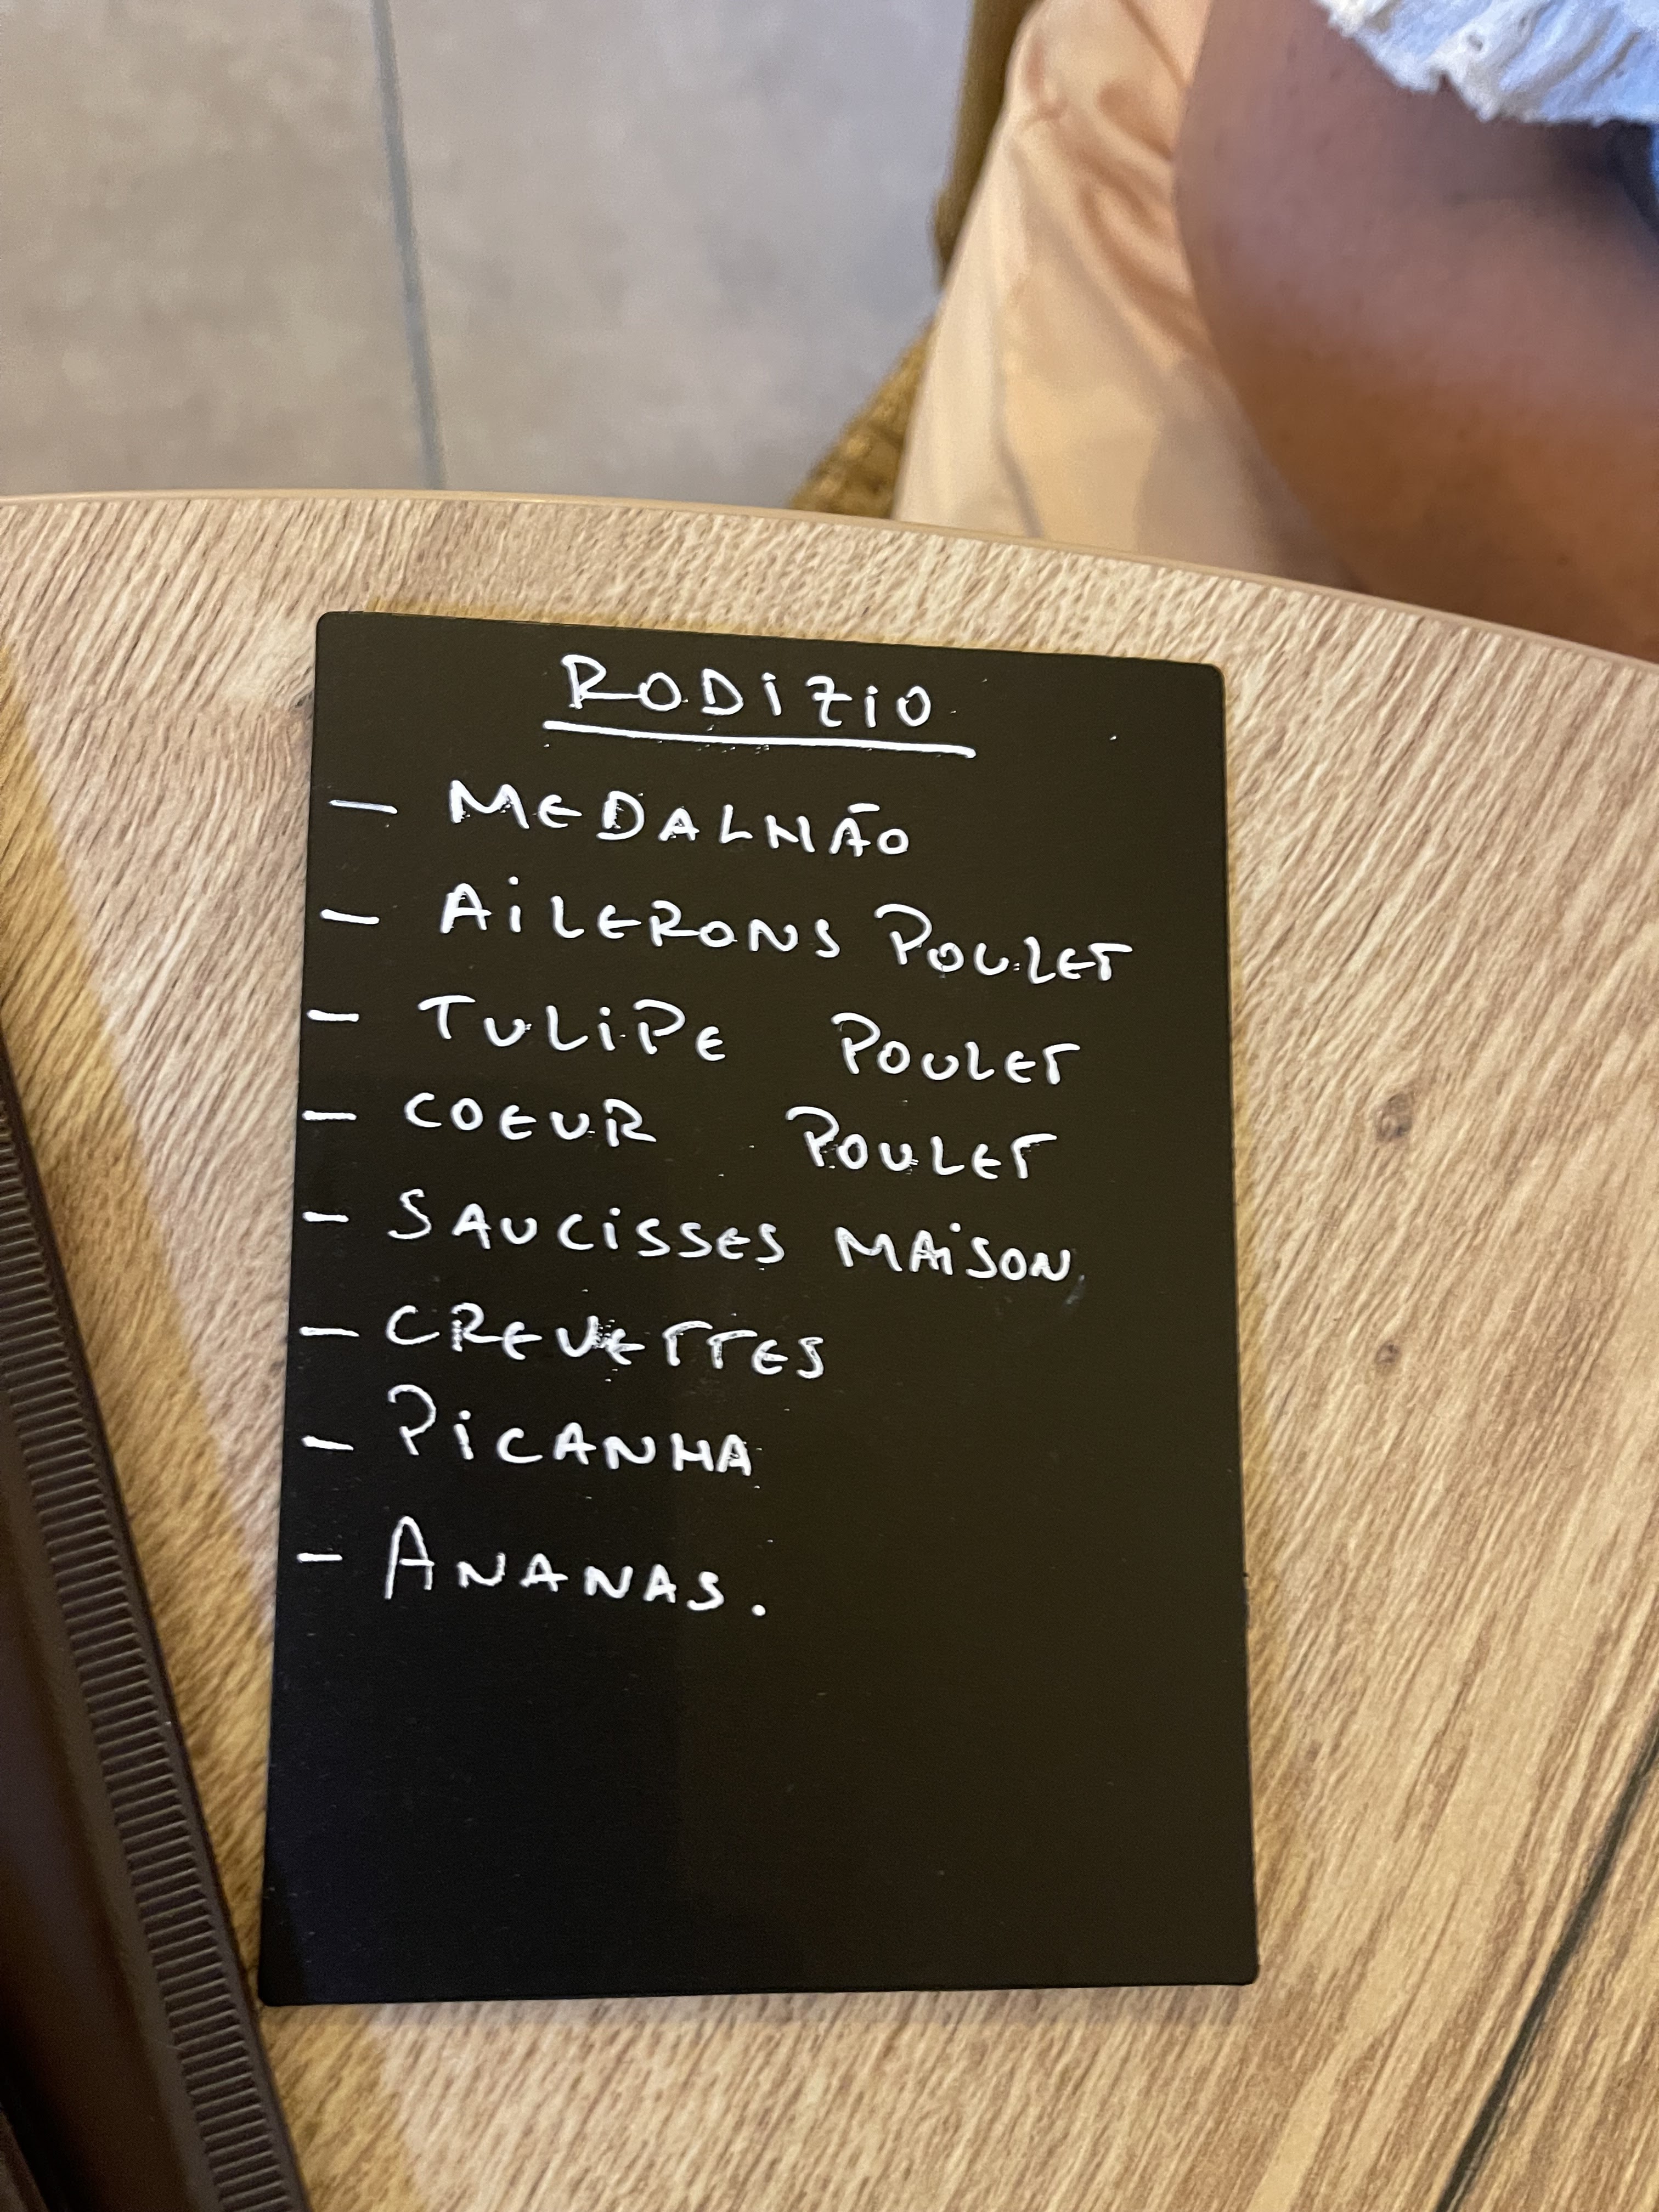 RODiZiO
- MEDALHÃO
- AiLERONS POULET
- TULiPE POULET
- COEUR POULET
- SAUCiSSES MAiSON
- CREVETTES
- PiCANHA
- ANANAS.